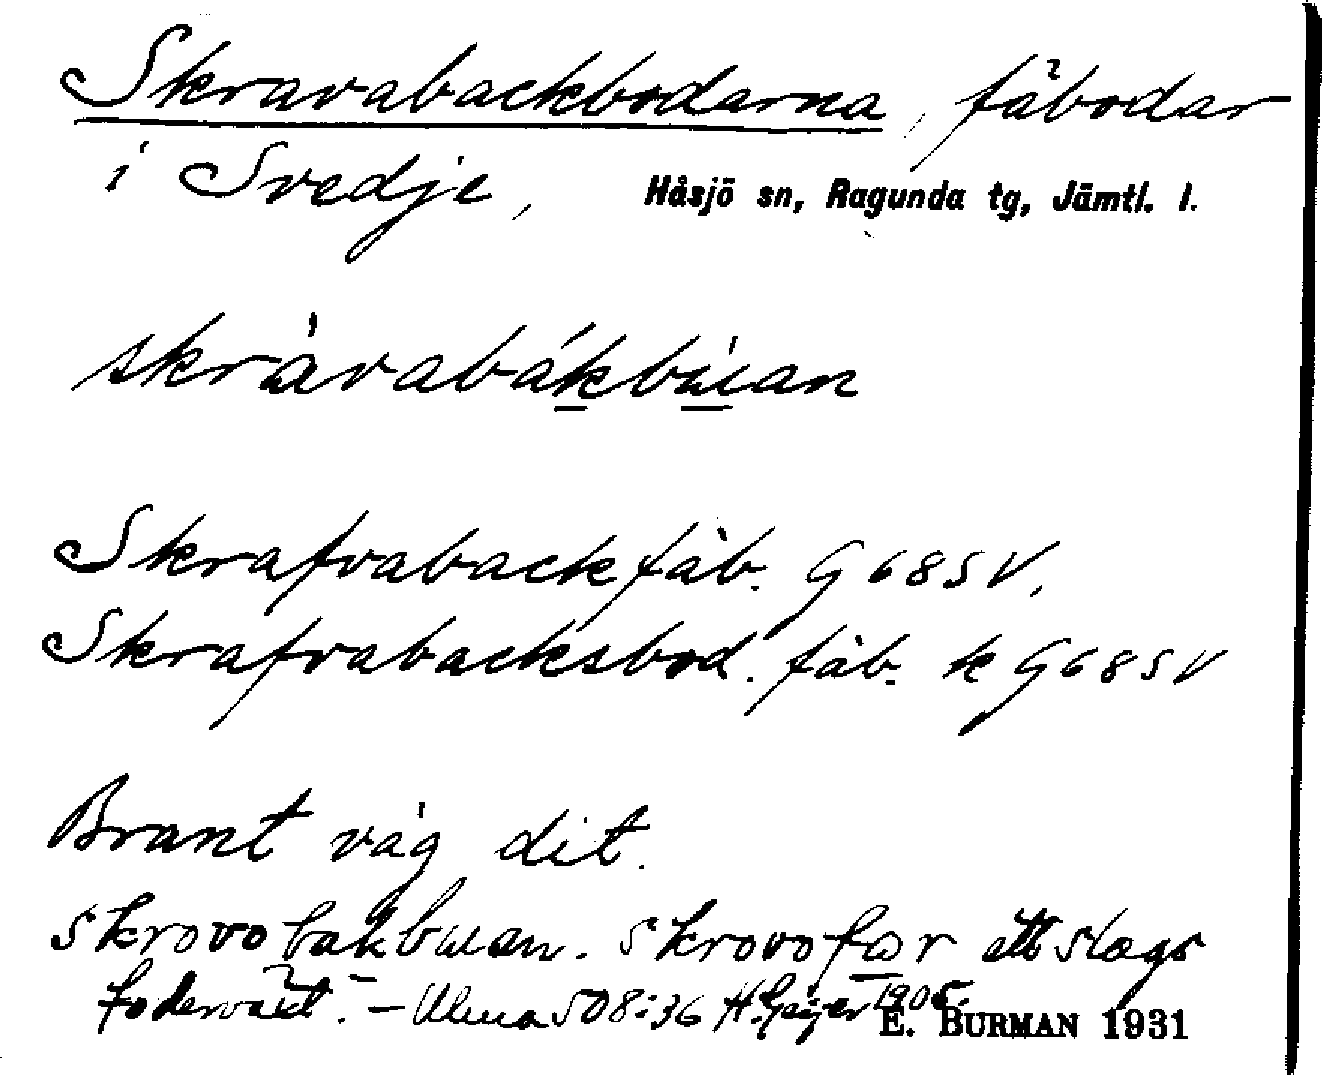 Skravabackbodarna, fäbodar
i Svedje, Håsjö sn, Ragunda tg, Jämtl. l.
skràvabákbúan
Skrafvabackfäb. G68SV,
Skrafvabacksbod. fäb. k G68SV
Brant väg dit.
skrovobakbuan. skrovofær ett slags
foderväxt. – Ulma 508:36 H. Geijer 1905.
E. BURMAN 1931